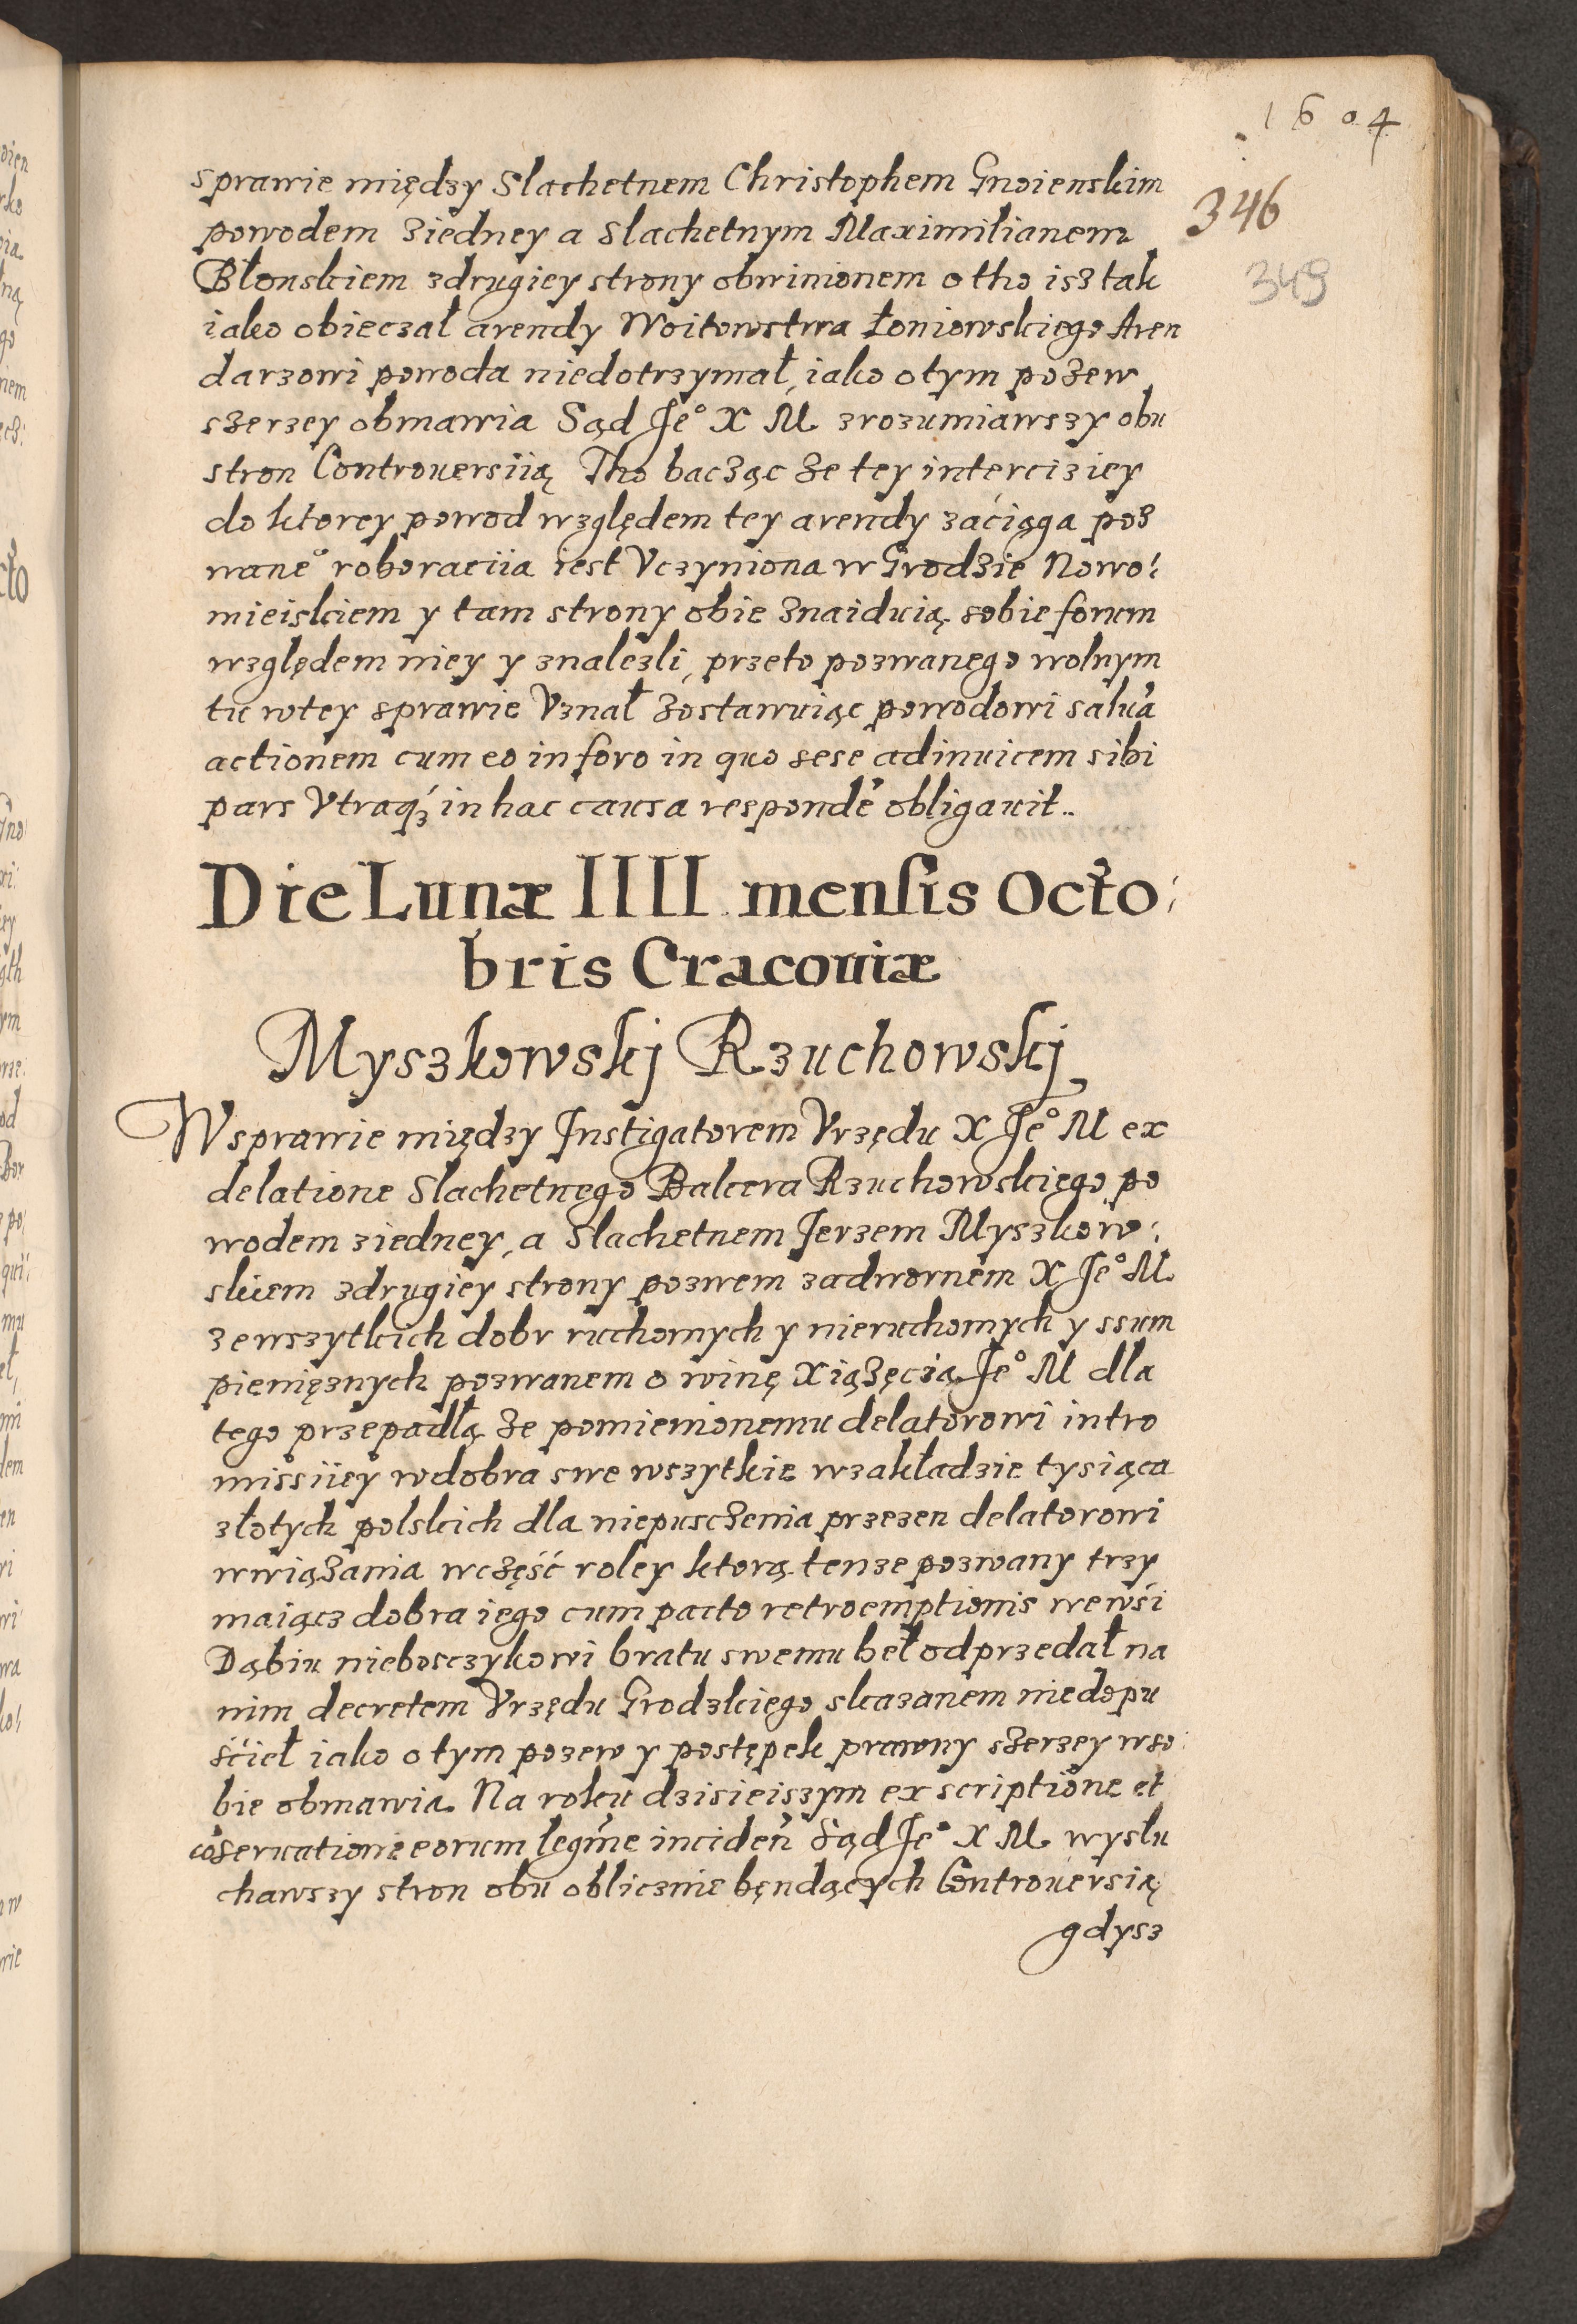 1604
346
349
sprawie między Slachetnem Christophem Gnoienskim
powodem ziedney a slachetnym Maximilianem
Błonskiem zdrugiey strony obwinionem o tho isz tak
iako obieczał arendy Woitowstwa Łoniowskiego Aren
darzowi powoda niedotrzymał, iako otym pozew
szerzey obmawia Sąd Jeº X M zrozumiawszy obu
stron Controuersiią Tho bacząc ze tey interciziey
do ktorey powod względem tey arendy zaciąga poz
waneº roboraciia iest Vczyniona w Grodzie Nowo:
mieiskiem y tam strony obie znaiduią sobie forum
względem niey y znalezli, przeto pozwanego wolnym
tu wtey sprawie Vznał zostawuiąc powodowi salua
actionem cum eo in foro in quo sese adinuicem sibi
pars Vtraqꝫ in hac causa respondé obligauit..
Die Lunæ IIII mensis Octo:
bris Cracouiæ
Myszkowskj Rzuchowskj
Wsprawie między Instigatorem Vrzędu X Jeº M ex
delatione Slachetnego Balcera Rzuchowskiego po
wodem ziedney, a slachetnem Jerzem Myszkow:
skiem zdrugiey strony pozwem zadwornem X Jeº M
zewszytkich dobr ruchomych y nieruchomych y ssum
pieniężnych pozwanem o winę Xiążęcią Jeº M dla
tego przepadłą ze pomienionemu delatorowi intro
missiiey wdobra swe wszytkie wzakładzie tysiąca
złotych polskich dla niepusczenia przezen delatorowi
wwiązania wczęść roley ktorą tenze pozwany trzy
maiącz dobra iego cum pacto retroemptionis wewsi
Dąbiu nieboszczykowi bratu swemu beł odprzedał na
nim decretem Vrzędu Grodzkiego skazanem niedopu
ścieł iako otym pozew y postępek prawny szerzey wso:
bie obmawia. Na roku dzisieiszym ex scriptione et
cõseruatione eorum legtme inciden Sąd Jeº X M wyslu
chawszy stron obu oblicznie bęndących Controuersią
gdysz